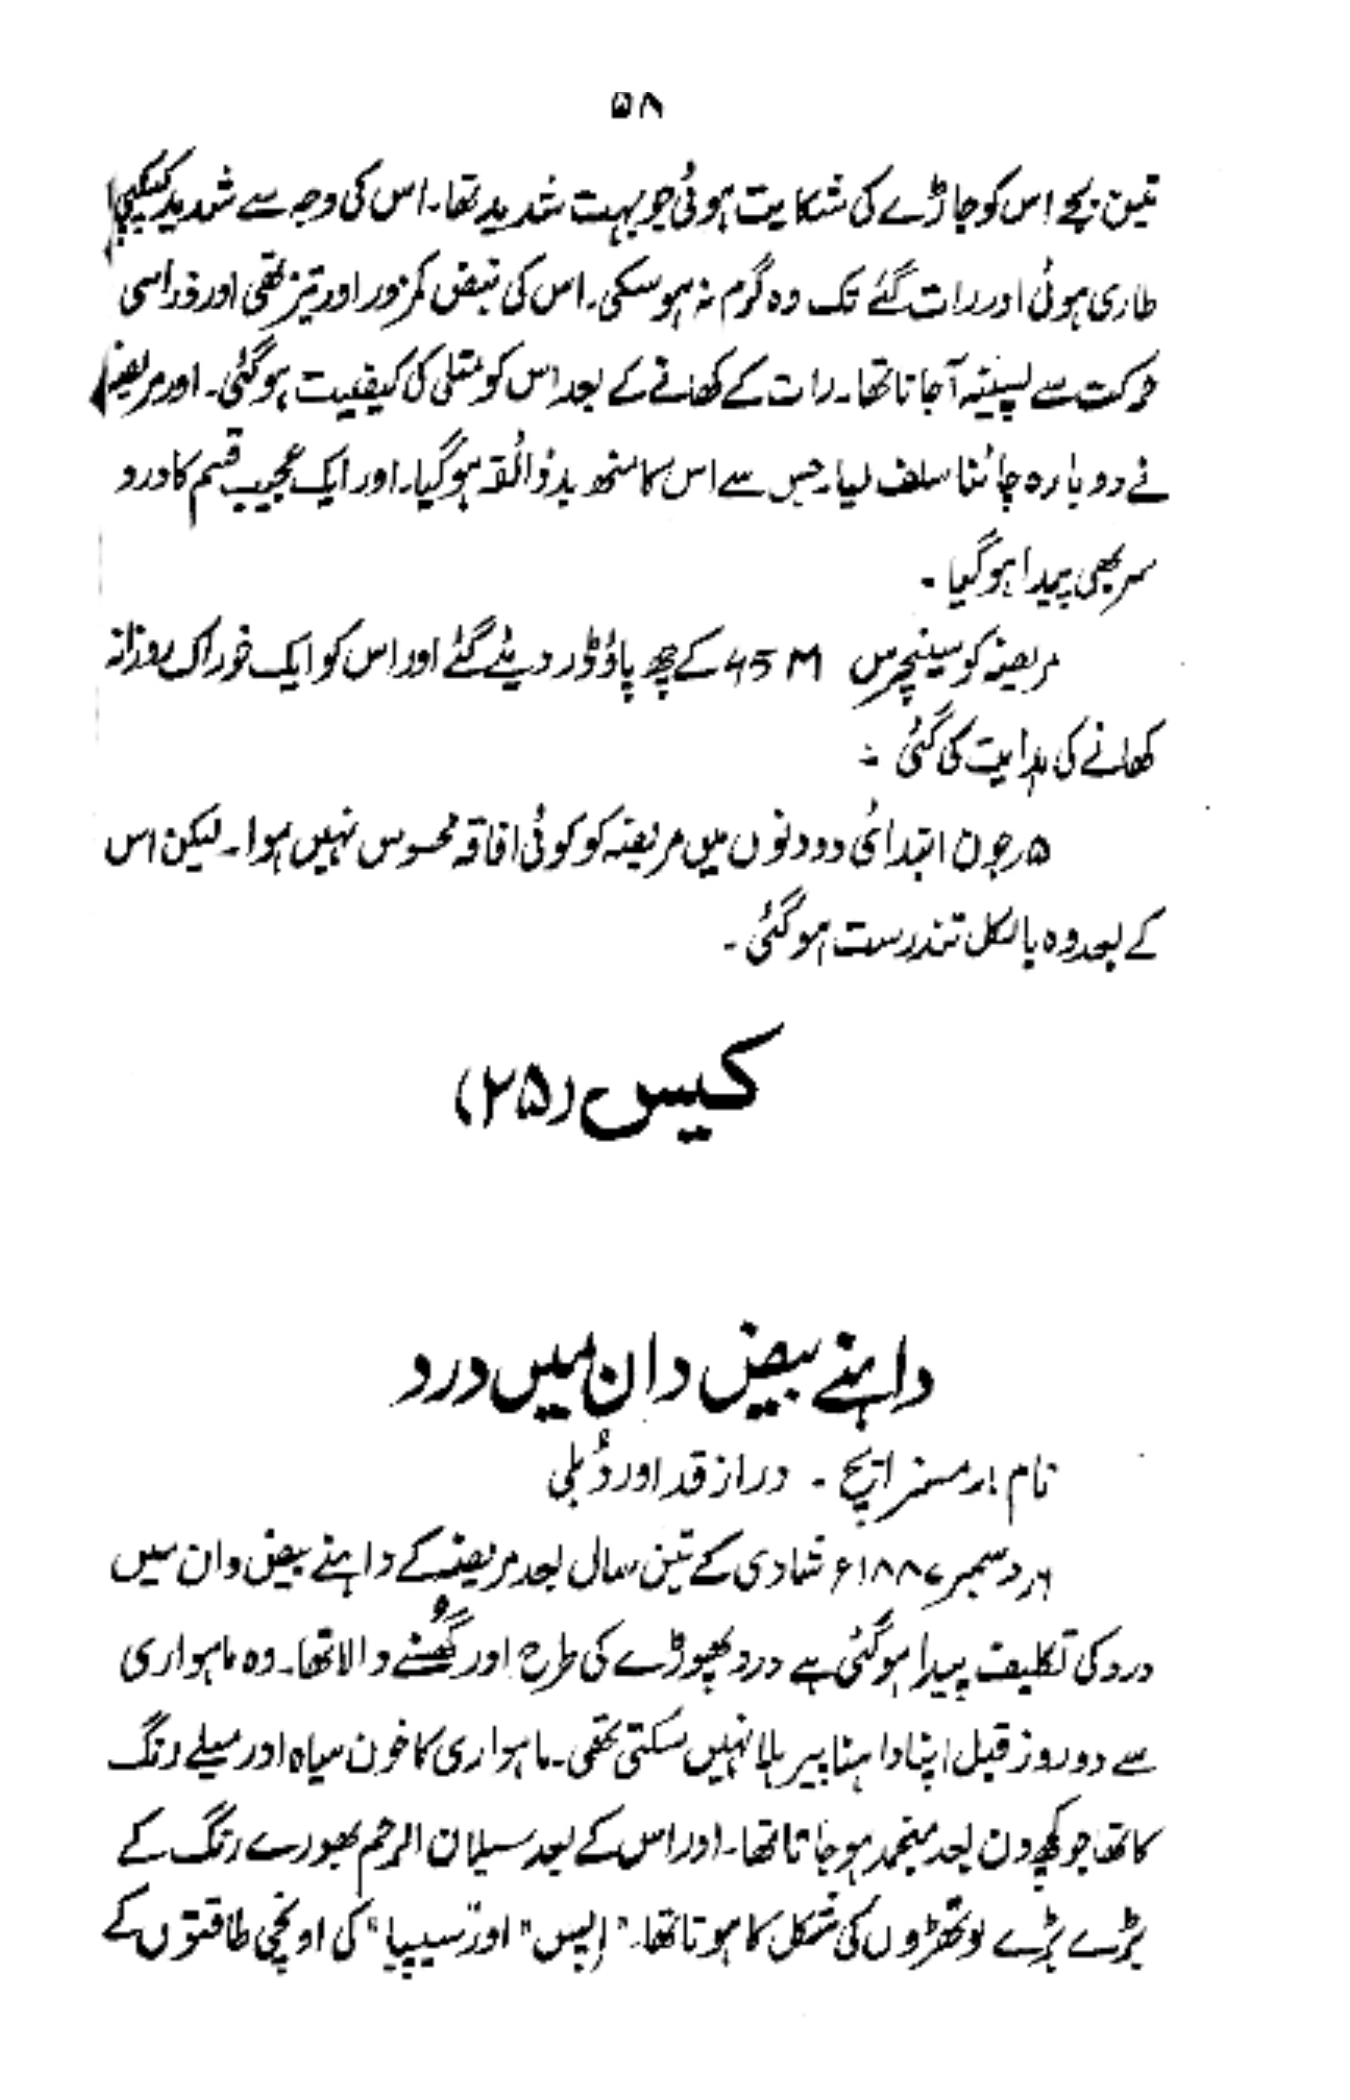 ۵۸
تین بجے اس کو جاڑے کی شکایت ہوئی جو بہت شدید تھا۔ اس کی وجہ سے شدید کپکپی
طاری ہوئی اور رات گئے تک وہ گرم نہ ہو سکی۔ اس کی نبض کمزور اور تیز تھی اور ذرا سی
حرکت سے پسینہ آجاتا تھا۔ رات کے کھانے کے بعد اس کو متلی کی کیفیت ہوگئی۔ اور مریضہ
نے دوبارہ چائنا سلف لیا۔ جس سے اس کا منھ بدذائقہ ہوگیا۔ اور ایک عجیب قسم کا درد
سر بھی پیدا ہوگیا۔
مریضہ کو سینچرس 45 M کے چھ پاؤڈر دیئے گئے اور اس کو ایک خوراک روزانہ
کھانے کی ہدایت کی گئی :۔
۵؍ جون ابتدائی دو دنوں میں مریضہ کو کوئی افاقہ محسوس نہیں ہوا۔ لیکن اس
کے بعد وہ بالکل تندرست ہوگئی۔
کیس (۲۵)
داہنے بیض دان میں درد
نام :۔ مسز ایچ۔ دراز قد اور دُبلی
۶؍ دسمبر ۱۸۸۷ء شادی کے تین سال بعد مریضہ کے داہنے بیض دان میں
درد کی تکلیف پیدا ہوگئی ہے درد پھوڑے کی طرح اور گھسنے والا تھا۔ وہ ماہواری
سے دو روز قبل اپنا داہنا پیر ہلا نہیں سکتی تھی۔ ماہواری کا خون سیاہ اور میلے رنگ
کا تھا جو کچھ دن بعد منجمد ہو جاتا تھا۔ اور اس کے بعد سیلان الرحم بھورے رنگ کے
بڑے بڑے لوتھڑوں کی شکل کا ہوتا تھا۔ "اپس" اور "سیپیا" کی اونچی طاقتوں کے